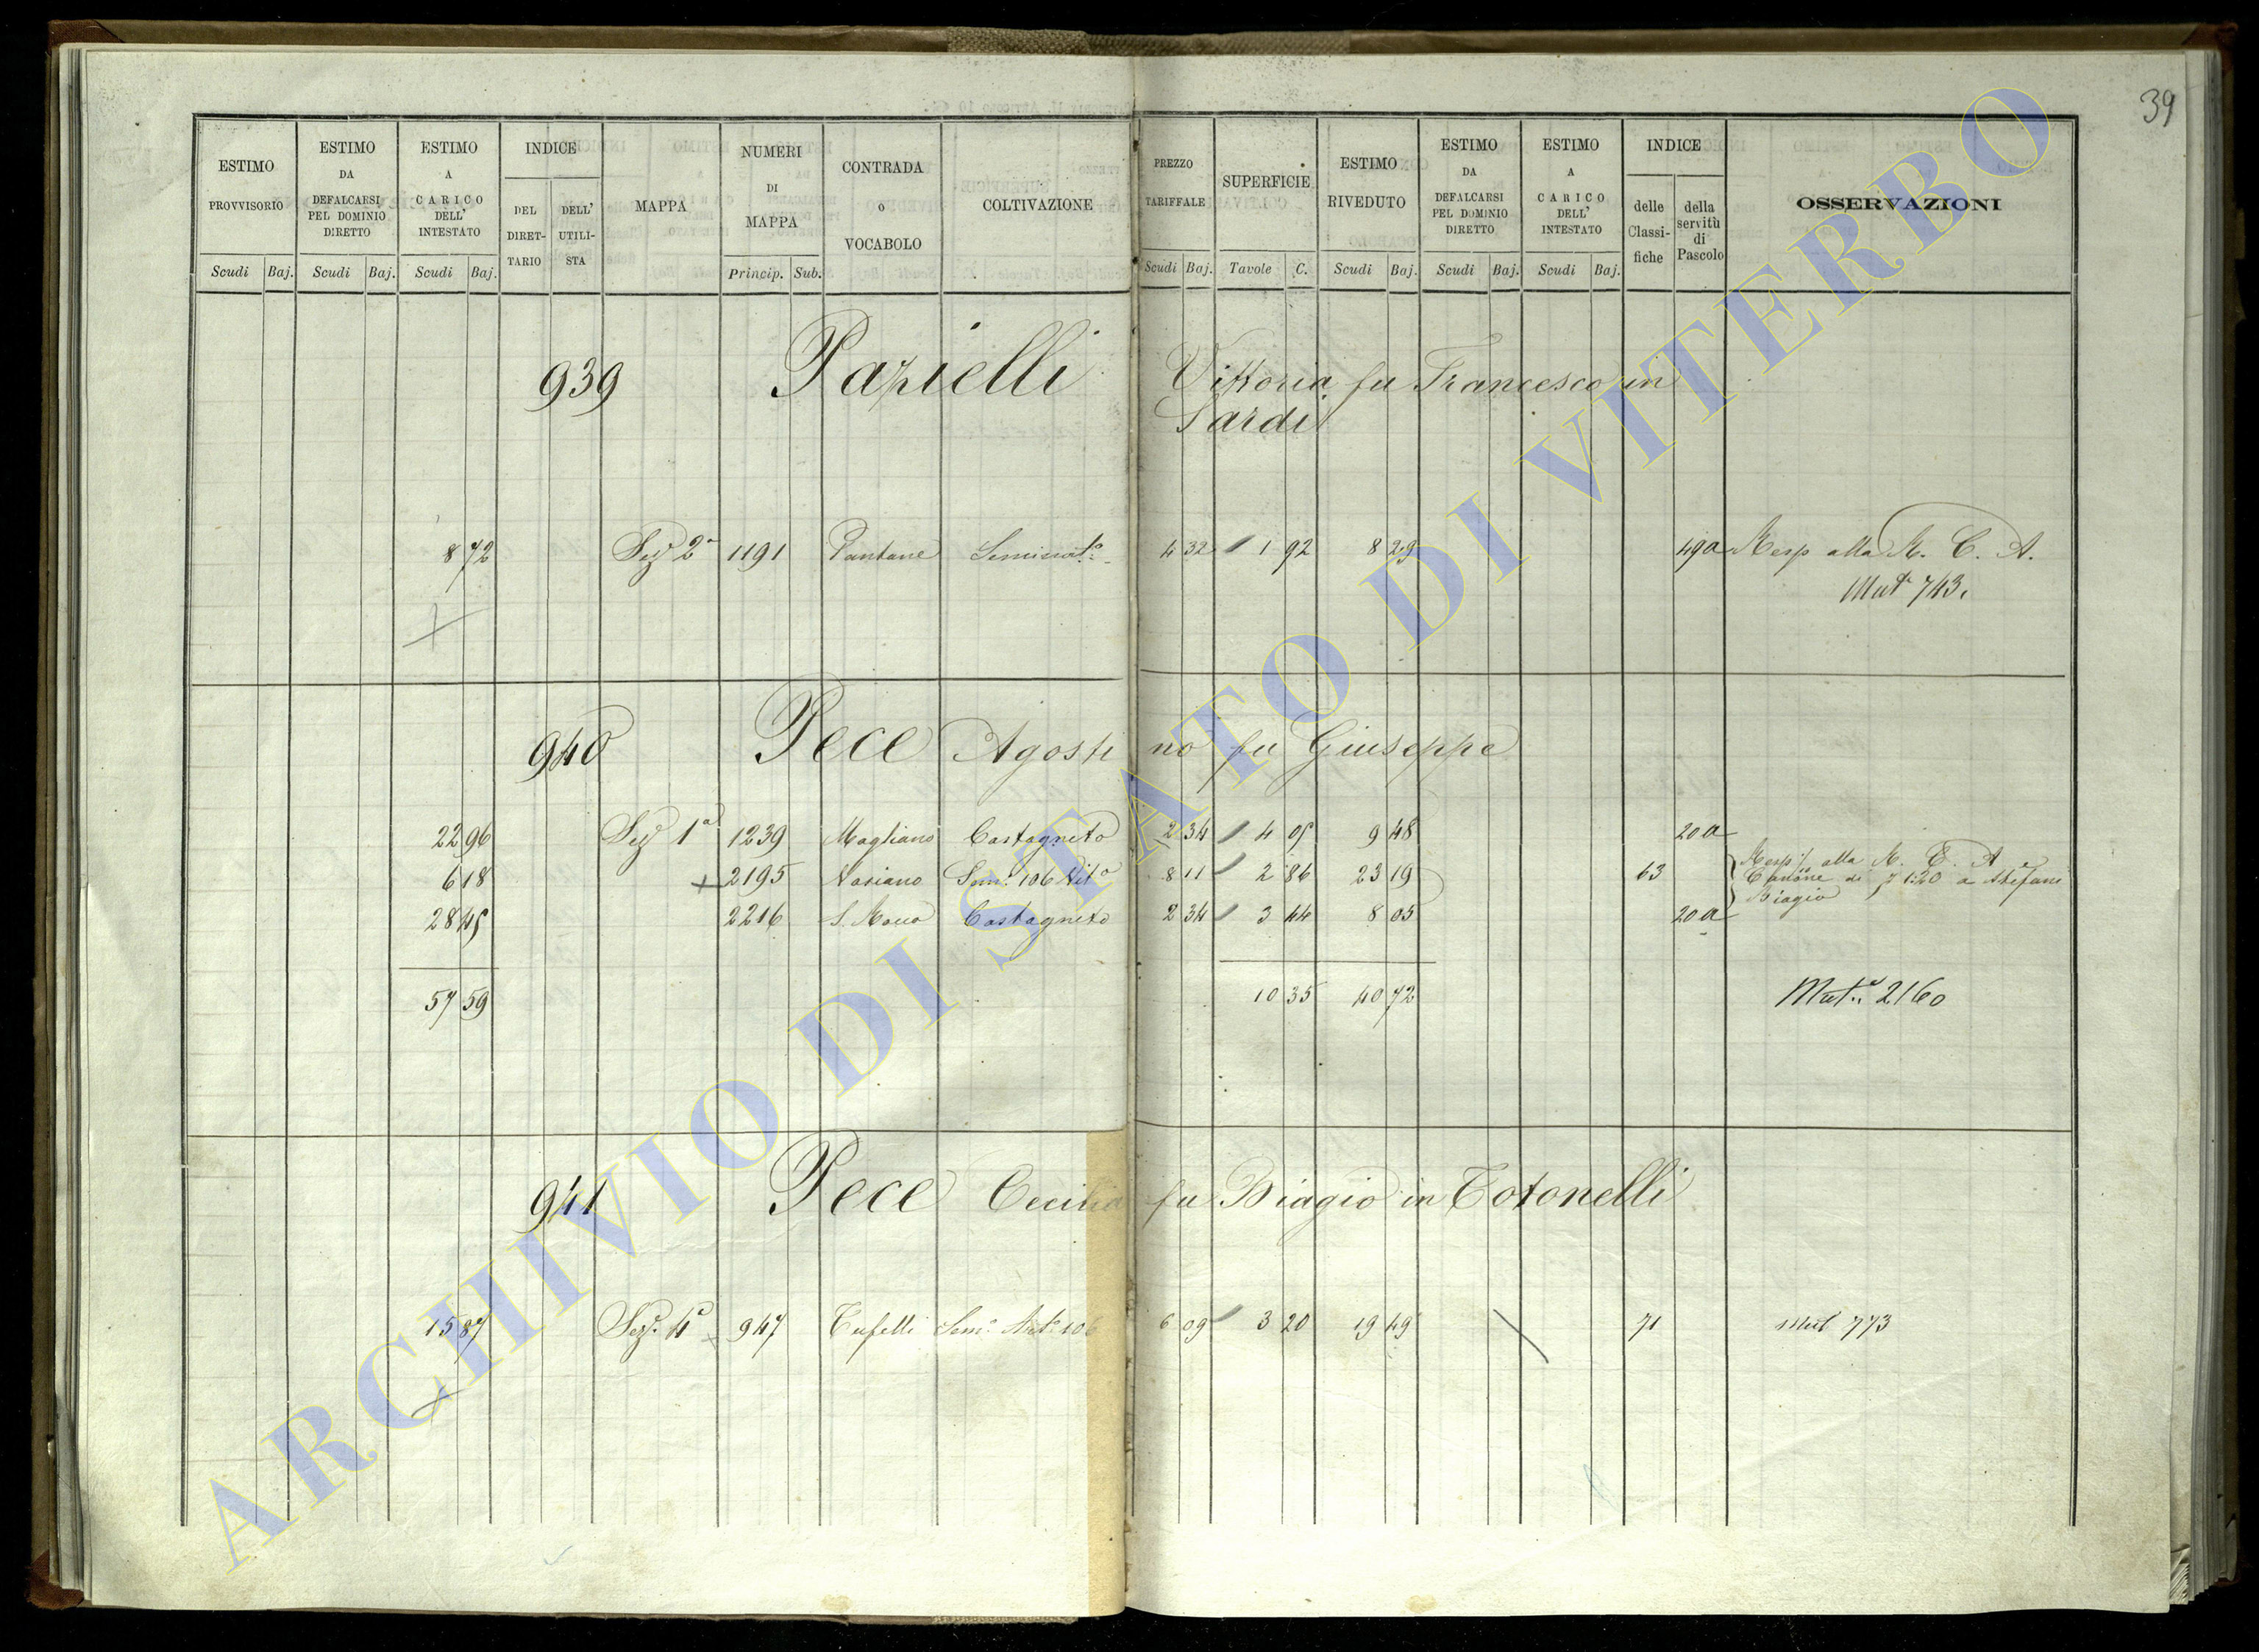 39
ESTIMO PROVVISORIO
ESTIMO DA DEFALCARSI PEL DOMINIO DIRETTO
ESTIMO A CARICO DELL' INTESTATO
INDICE
DEL DIRET-TARIO
DELL' UTILI-STA
MAPPA
NUMERI DI MAPPA
CONTRADA O VOCABOLO
COLTIVAZIONE
PREZZO TARIFFALE
SUPERFICIE
ESTIMO RIVEDUTO
ESTIMO DA DEFALCARSI PEL DOMINIO DIRETTO
ESTIMO A CARICO DELL' INTESTATO
INDICE
delle Classi-fiche
della servitù di Pascolo
OSSERVAZIONI
Scudi Baj. Scudi Baj. Scudi Baj. Princip. Sub. Scudi Baj. Tavole C. Scudi Baj. Scudi Baj. Scudi Baj.
939 Pazielli Vittoria fu Francesco in
Sardi
8 72 Sez 2a 1191 Pantane Seminato 4 32 1 92 8 29 49a Resp alla R. C. A.
Mut 743.
940 Pece Agostino fu Giuseppe
22 96 Sez 1a 1239 Magliano Castagneto 2 34 4 05 9 48 20a
6 18 2195 Vasiano Sem.o 106 Vit.o 8 11 2 86 23 19 63 Resp. alla R. C. A
Canone di 1:20 a Stefani
Biagio
28 45 2216 S. Rocco Castagneto 2 34 3 44 8 05 20a
57 59 10 35 40 72 Mut.a 2160
941 Pece Cecilia fu Biagio in Totonelli
15 87 Sez. 4a 947 Tufelli Sem.o Vit.o 106 6 09 3 20 19 49 71 Mut 773
ARCHIVIO DI STATO DI VITERBO